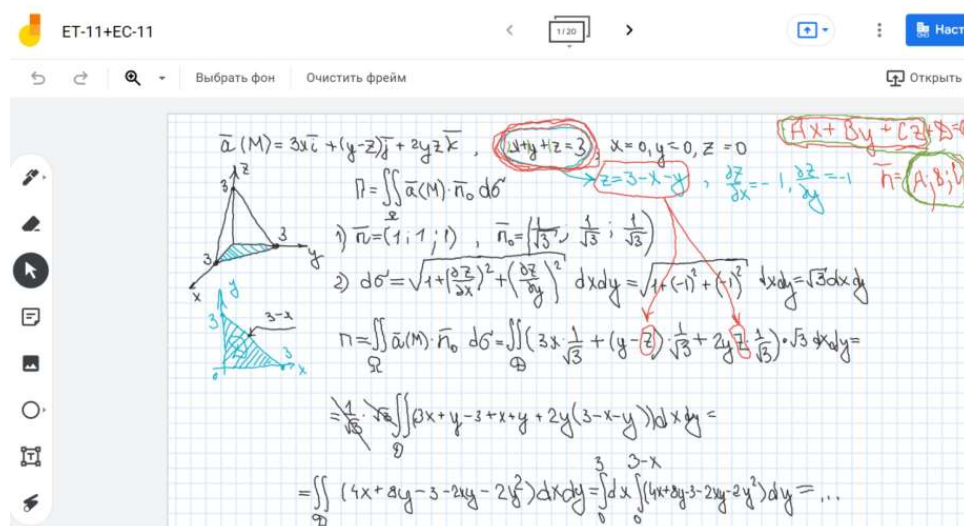 ET-11+EC-11
1/20
Наст
Выбрать фон
Очистить фрейм
Открыть
a̅(M)=3xi̅+(y-z)j̅+2yzk̅, x+y+z=3, x=0, y=0, z=0
Ax+By+Cz+D=0
z=3-x-y, ∂z/∂x=-1, ∂z/∂y=-1
n̅=(A;B;C)
П=∬_Ω a̅(M)·n̅₀ dσ
1) n̅=(1;1;1), n̅₀=(1/√3; 1/√3; 1/√3)
2) dσ=√(1+(∂z/∂x)²+(∂z/∂y)²) dxdy=√(1+(-1)²+(-1)²) dxdy=√3dxdy
z
3
3
y
3
x
y
3
3-x
0
3
x
П=∬_Ω a̅(M)·n̅₀ dσ=∬_D (3x·1/√3+(y-z)·1/√3+2yz·1/√3)·√3 dxdy=
=1/√3·√3∬_D (3x+y-3+x+y+2y(3-x-y))dxdy=
=∬_D (4x+8y-3-2xy-2y²)dxdy=∫₀³dx∫₀^(3-x)(4x+8y-3-2xy-2y²)dy=...